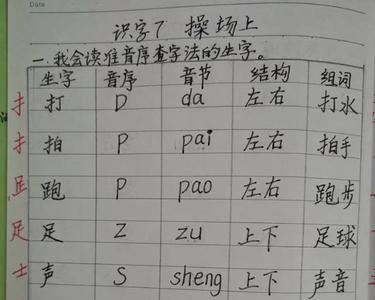 Date
识字7 操场上
一.我会读准音序查字法的生字。
生字 音序 音节 结构 组词
扌 打 D da 左右 打水
扌 拍 P pai 左右 拍手
𧾷 跑 P pao 左右 跑步
足 足 Z zu 上下 足球
士 声 S sheng 上下 声音